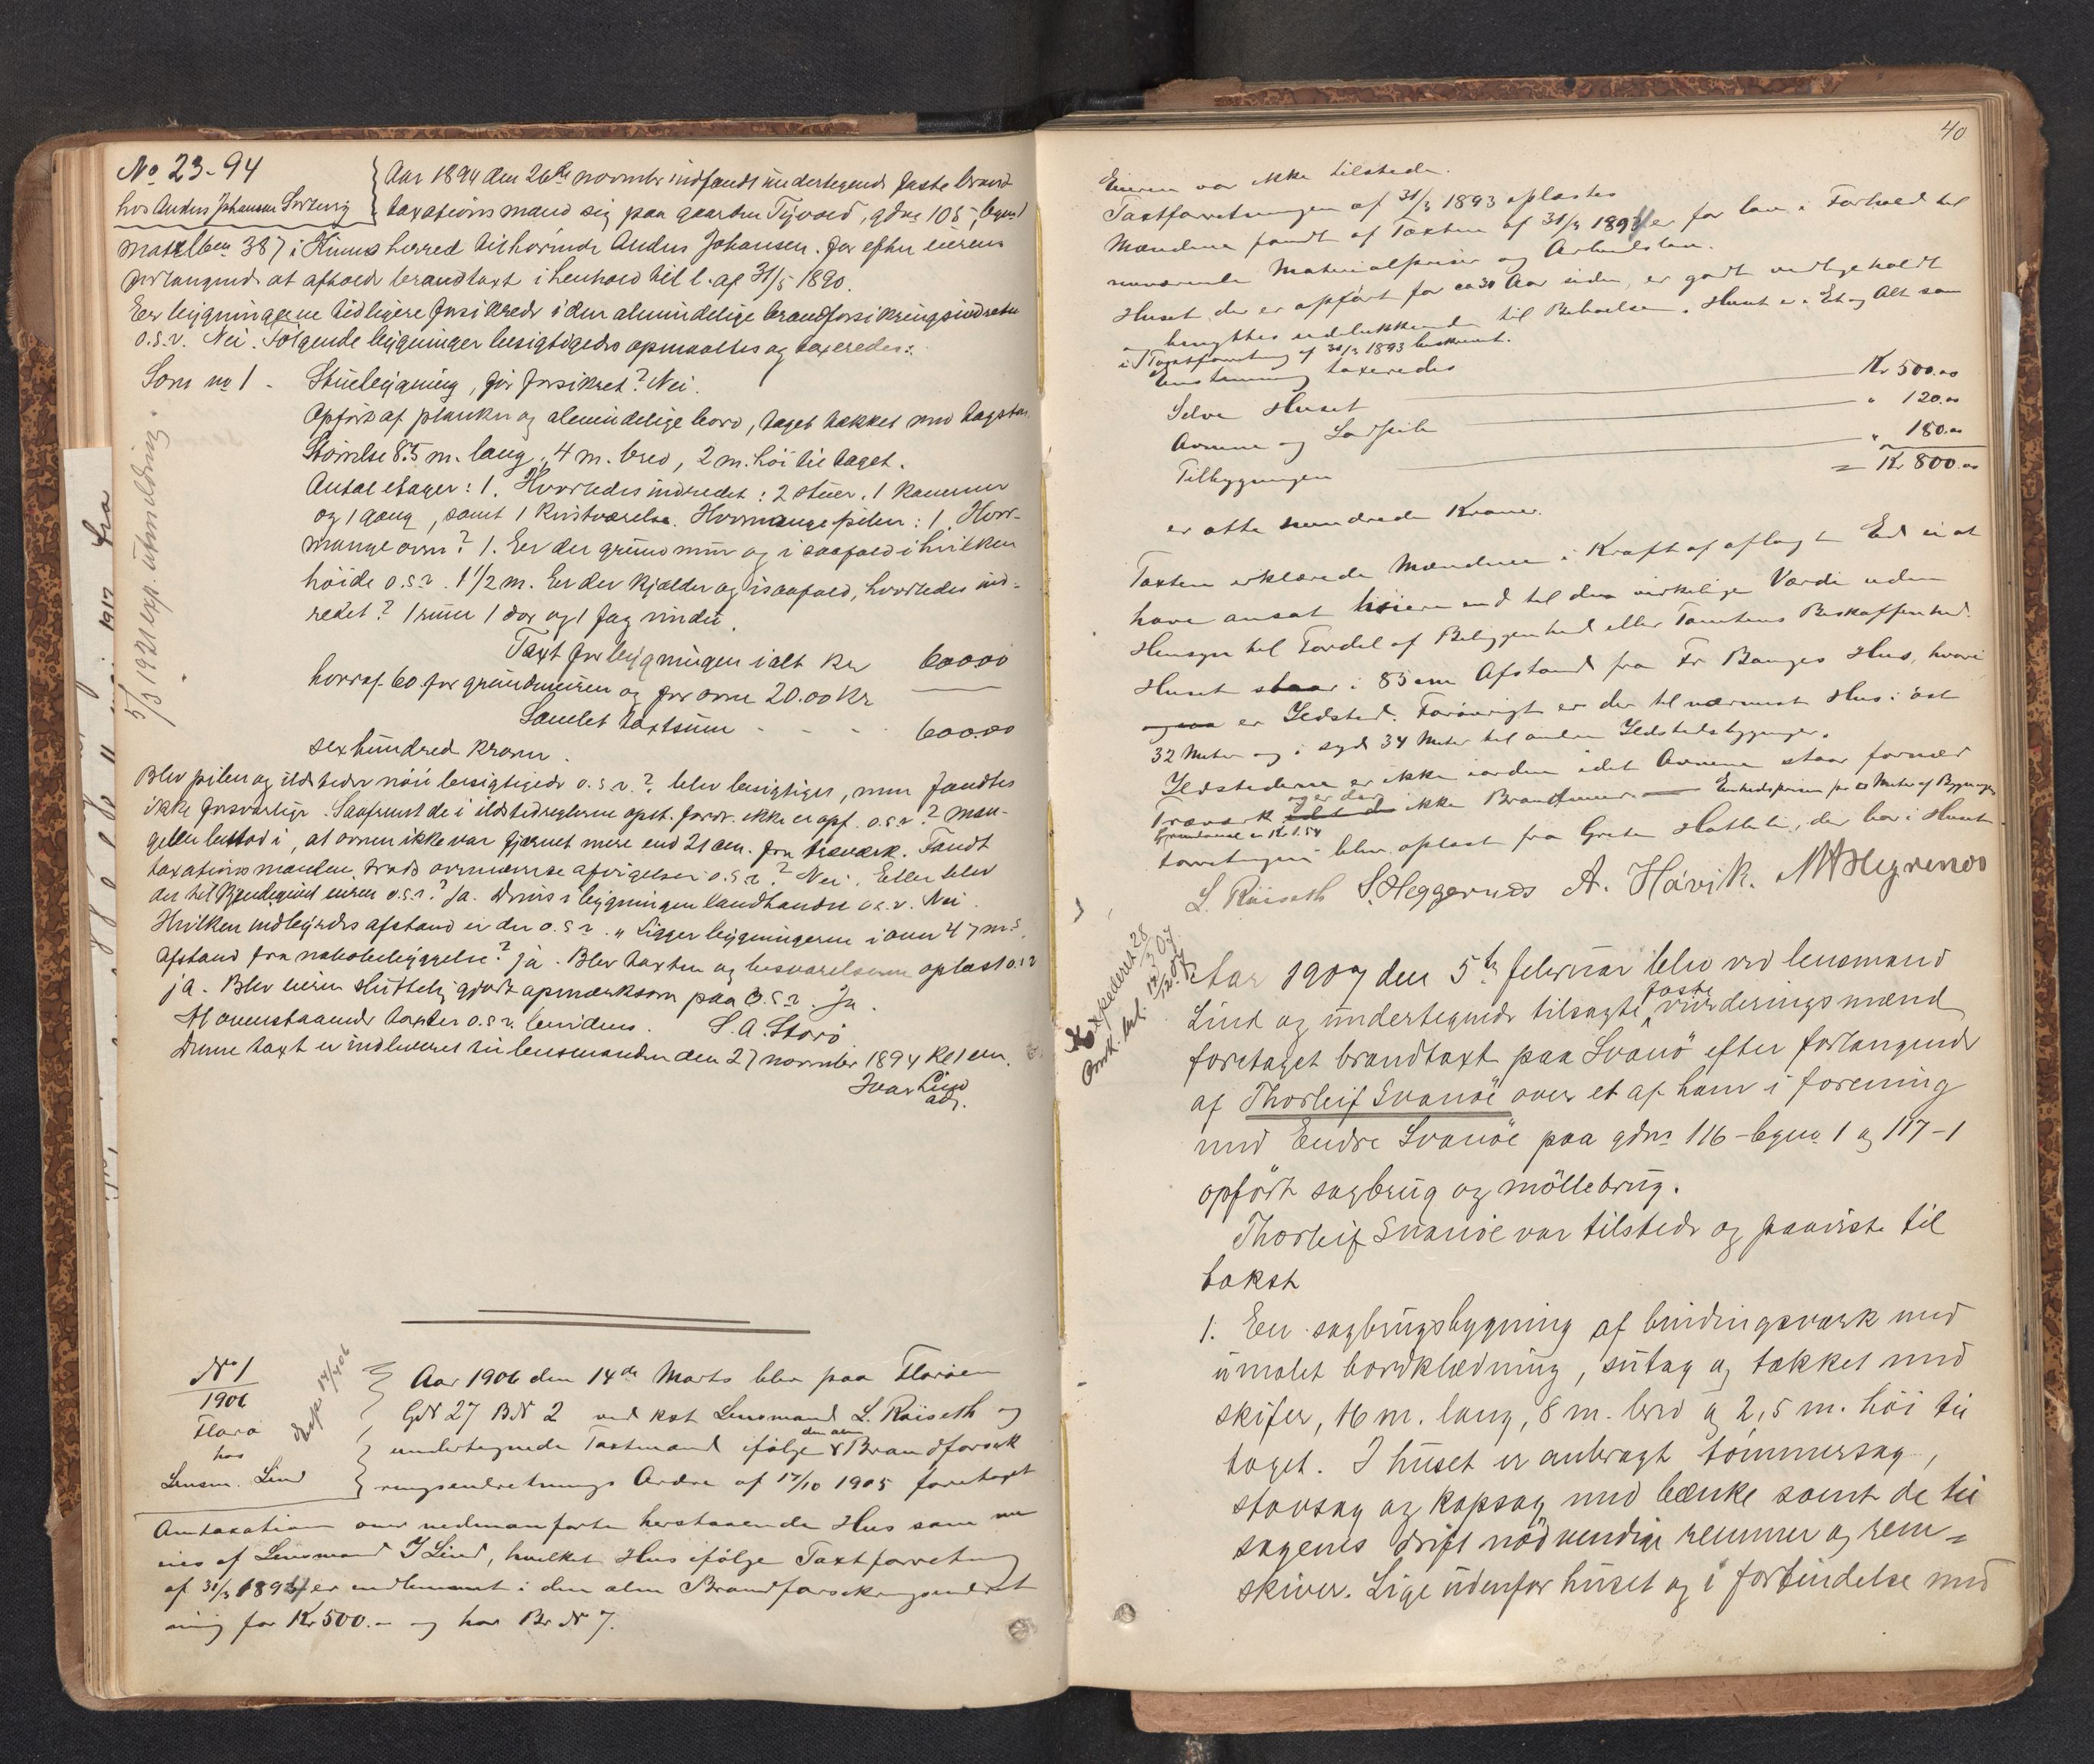 No 23-94
hos Anders Johansen Sortevig
Aar 1894 den 26de novembr indfandt undertegnede faste brand
taxationsmand sig paa gaarden Tyvold, gdno 105, bgno 1
matrlben 387 i Kinns herred tilhørende Anders Johansen. for efter eierens
forlangende at afholde brandtaxt i henhold til l. af 31/5 1890.
Eer bygningerne tidligere forsikrede i den almindelige brandforsikringsindretn
o.s.v. Nei. Følgende bygninger besigtigedes opmaaltes og taxeredes:
Som no 1 - Stuebygning, før forsikret? Nei.
Opført af planker og almindelige bord, taget tækket med tagsten
Størrelse 8.5 m. lang, 4 m. bred, 2 m. høi til taget.
Antal etager: 1. Hvorledes indredet: 2 stuer, 1 kammer
og 1 gang, samt 1 kvistværelse. Hvormange piber: 1. Hvor-
mange ovne? 1. Er der grundmur og i saafald i hvilken
høide o.s.v. 1 1/2 m. Er der kjælder og i saafald, hvorledes ind-
redet? 1 rum 1 dør og 1 fag vindu.
Taxt for bygningen ialt Kr 600.00
hvoraf 60 for grundmuren og for ovne 20.00 Kr
Samlet taxtsum - - - 600.00
sexhundred kroner.
Blev piber og ildsteder nøie besigtigede o.s.v.? blev besigtiget, men fandtes
ikke forsvarlige. Saafremt de i ildstedreglerne opst. fordr. ikke er opf. o.s.v? Man-
gelen bestod i, at ovnen ikke var fjærnet mere end 21 cm. fra træværk. Fandt
taxationsmanden trods ovennævnte afvigelser o.s.v? Nei. Eller blev
det tilkjendegivet eieren o.s.v? Ja. Drives i bygningen landhandel o.s.v. Nei.
Hvilken indbyrdes afstand er der o.s.v. " Ligger bygningerne i over 47 m's
afstand fra nabobebyggelse? ja. Blev taxten og besvarelserne oplæst o.s.v
ja. Blev eieren sluttelig gjort opmærksom paa o.s.v. Ja.
At ovenstaaende taxter o.s.v. bevidnes. S. A. Storø
Denne taxt er indleveret til lensmanden den 27 november 1894 Kl 1 em.
Ivar Lind
adj.
5/3 1921 exp. utmelding.
No 1
1906
Flora
hos
Lensm. Lind
Exp. 17/4 06
Aar 1906 den 14de Marts blev paa Florøen
GN 27 BN 2 ved kst Lensmand L. Røiseth og
undertegnede Taxtmænd ifølge den alm Brandforsik
ringsindretnings Ordre af 17/10 1905 foretaget
Omtaxation over nedenanførte herstaaende Hus som
eies af Lensmand I Lind, hvilket Hus ifølge Taxtforretning
af 31/3 1893 er indlemmet i den alm Brandforsikringsindret
ning for Kr 500.- og har Br N 7.
40
Eieren var ikke tilstede.
Taxtforretningen af 31/3 1893 oplæstes
Mændene fandt af Taxten af 31/3 1893 er for lav i Forhold til
nuværende Materialpriser og Arbeidsløn.
Huset, der er opført for ca 30 Aar siden, er godt vedligeholdt
og benyttes udelukkende til Beboelse. Huset er i Et og Alt som
i Taxtforretning af 31/3 1893 beskrevet.
Enstemmig taxeredes
Selve Huset Kr 500.00
Ovnene og Jordspile " 120.00
Tilbygningen " 180.00
= Kr 800.00
er otte hundrede Kroner.
Taxten erklærede Mændene i Kraft af aflagt Ed ei at
have ansat høiere end til den virkelige Værdi uden
Hensyn til Fordel af Beliggenhed eller Tomtens Beskaffenhed.
Huset staar i 85 cm Afstand fra Fr Banges Hus, hvori
er Ildsted. Forøvrigt er der til nærmest Hus i øst
32 Meter og i syd 34 Meter til anden Ildstedsbygninger.
Ildstederne er ikke iorden idet Ovnene staar fornær
Træværk og er der ikke Brandmur. Enhedsprisen pr □ Meter af Bygningens
Grundareal er Kr 1.54
Forretningen blev oplæst fra Grete Hatlelie, der bor i Huset.
L. Røiseth S. Heggernæs A. Høvik. M A Hegrenes
Expederet 28/3 07
Omk. bet. 12/12 07
Aar 1907 den 5te februar blev ved lensmand
Lind og undertegnede tilsagte faste vurderingsmænd
foretaget brandtaxt paa Svanø efter forlangende
af Thorleif Svanøe over et af ham i forening
med Endre Svanøe paa gdno 116 - bgno 1 og 117 - 1
opført sagbrug og møllebrug.
Thorleif Svanøe var tilstede og paaviste til
takst
1. En sagbrugsbygning af bindingsværk med
umalet bordklædning, sutag og tækket med
skifer, 16 m. lang, 8 m. bred og 2,5 m. høi til
taget. I huset er anbragt tømmersag,
stavsag og kapsag med bænke samt de til
sagens drift nødvendige remmer og rem=
skiver. Lige udenfor huset og i forbindelse med